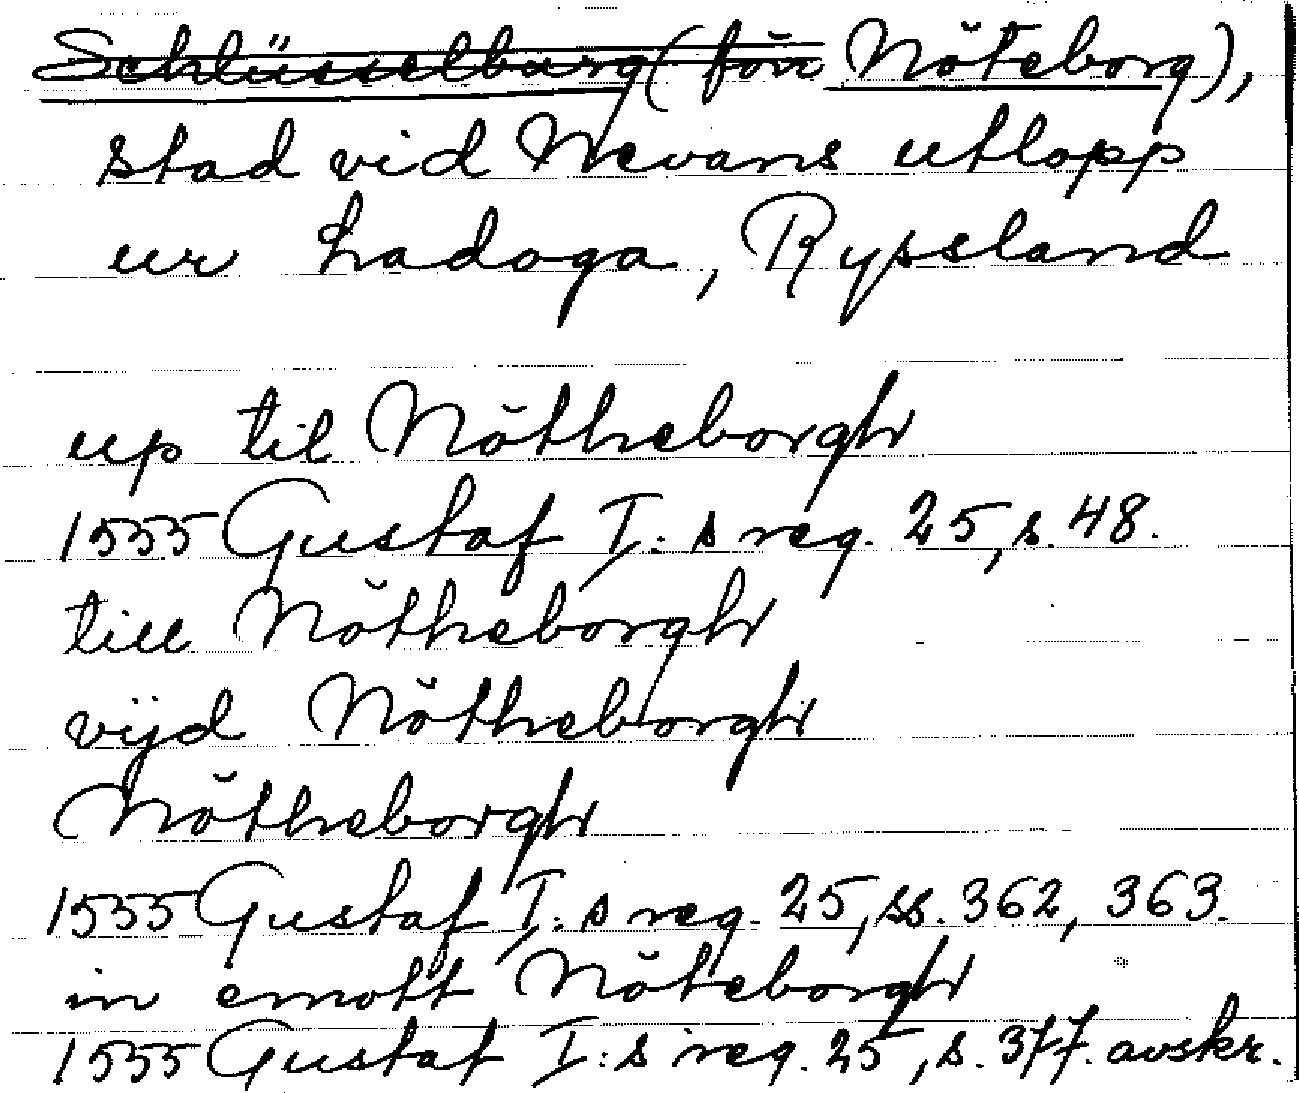 Schlüsselburg (förr Nöteborg),
stad vid Nevans utlopp
ur Ladoga, Ryssland
up til Nötheborgh
1555 Gustaf I:s reg. 25, s. 48.
till Nötheborgh
vijd Nötheborgh
Nötheborgh
1555 Gustaf I:s reg. 25, ss. 362, 363.
in emott Nöteborgh
1555 Gustaf I:s reg. 25, s. 377. avskr.